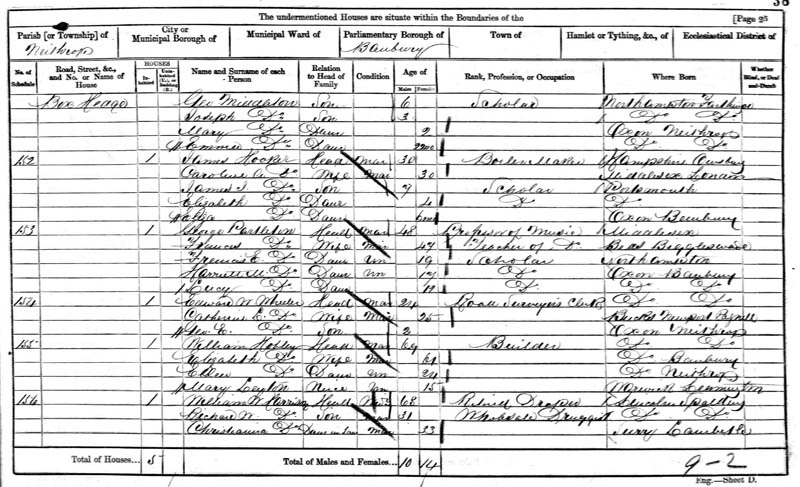 38
The undermentioned Houses are situate within the Boundaries of the [Page 25
Parish [or Township] of City or Municipal Borough of Municipal Ward of Parliamentary Borough of Town of Hamlet or Tything, &c., of Ecclesiastical District of
Neithrop Banbury
No. of Schedule Road, Street, &c., and No. or Name of House HOUSES Inhabited Uninhabited (U.), or Building (B.) Name and Surname of each Person Relation to Head of Family Condition Age of Males Females Rank, Profession, or Occupation Where Born Whether Blind, or Deaf-and-Dumb
Geo Middleton Son 6 Scholar Northampton
Joseph Do Son 3 Do Do
Mary Do Daur 2 Oxon Neithrop
Emma Do Daur Do Do
152 1 James Hooker Head Mar 30 Boiler Maker Hampshire
Caroline Do Wife Mar 30 Middlesex
James Do Son 7 Scholar Portsmouth
Elizabeth Do Daur 4 Do Do
Do Daur Oxon Banbury
153 1 George Head Mar 48 Professor of Music Middlesex
Frances Do Wife Mar 47 Teacher of Do Beds Biggleswade
Frances E. Do Daur Un 19 Scholar Northampton
Harriett M Do Daur Un 17 Do Oxon Banbury
Lucy Do Daur Do Do Do
154 1 Edward W Wheeler Head Mar 24 Surveyors Clerk Do Do
Catherine E. Do Wife Mar 25 Bucks Newport Pagnell
Geo E. Do Son 2 Oxon Neithrop
155 1 William Head Mar 69 Builder Do Do
Elizabeth Do Wife Mar 61 Do Banbury
Ellen Do Daur Un 24 Do Neithrop
Mary Leyton Niece Un 15 Warwick Leamington
156 1 William Head 68 Retired Draper Lincoln Spalding
Richard W. Do Son Mar 31 Wholesale Druggist Do Do
Christianna Do Daur in Law Mar 33 Surry Lambeth
Total of Houses... 5 Total of Males and Females... 10 14
9-2
Eng.—Sheet D.